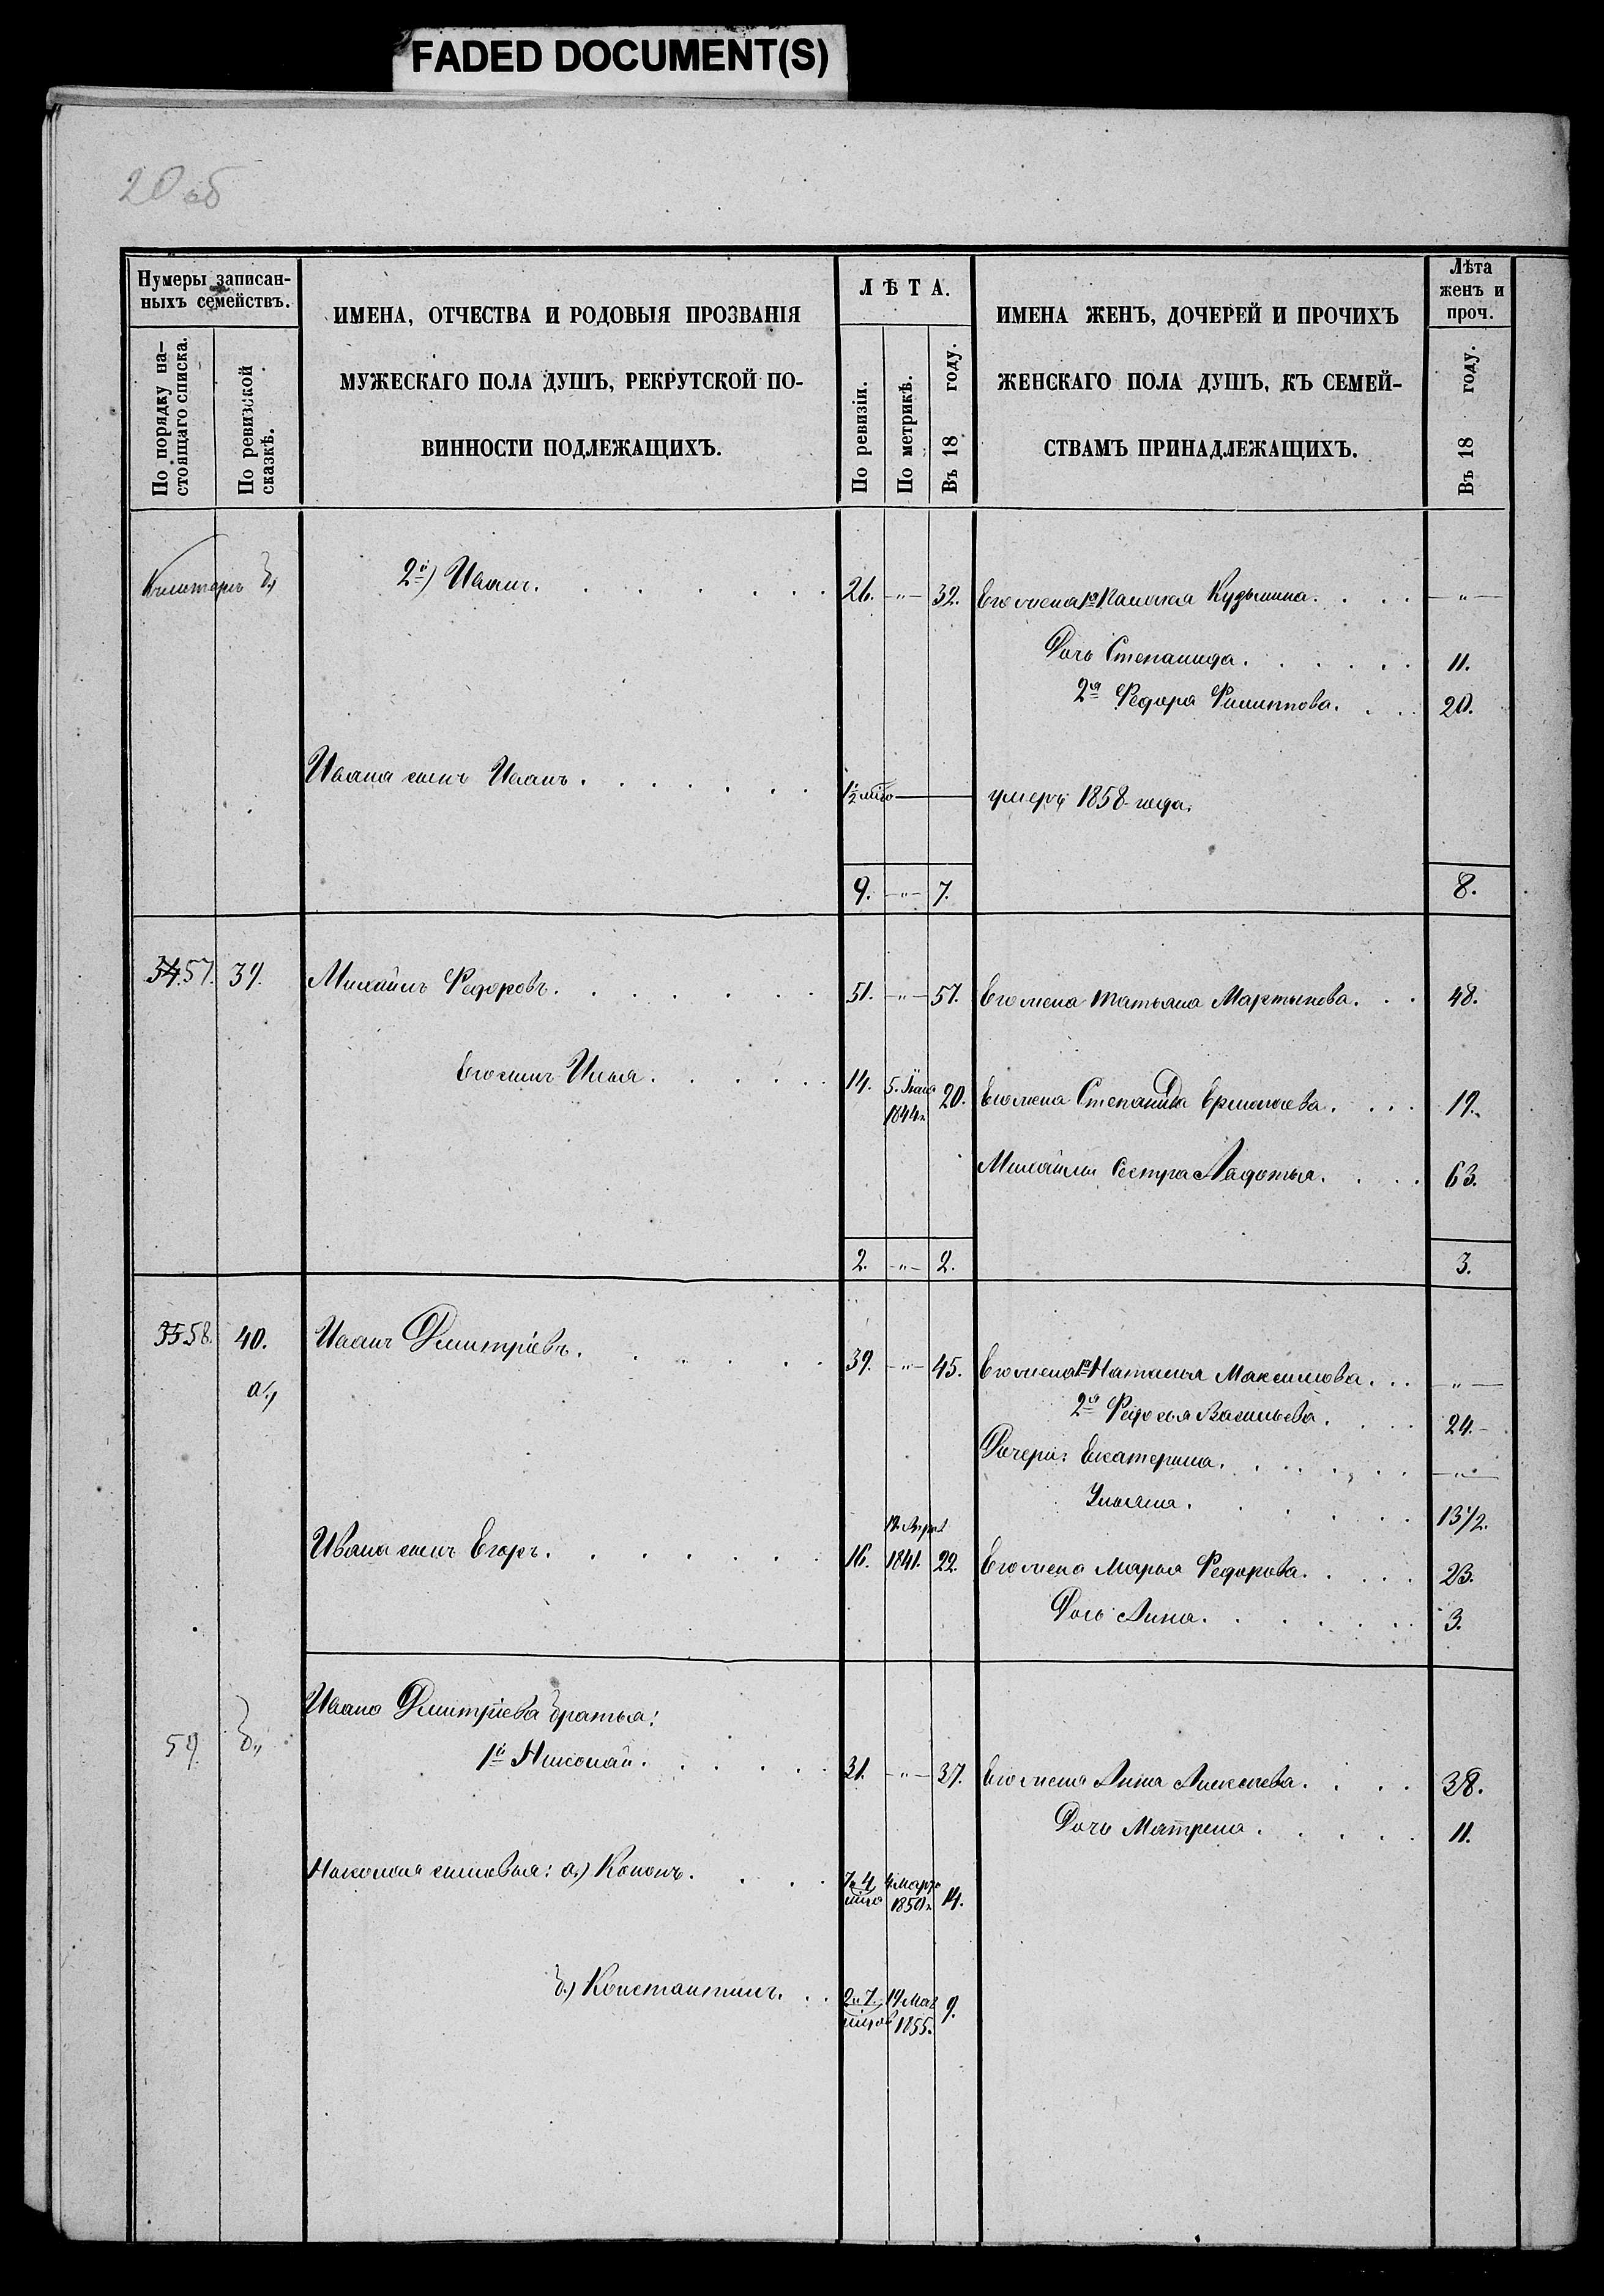 FADED DOCUMENT(S)
20 об
Нумеры записан-
ныхъ семействъ.
По порядку на-
стоящаго списка.
По ревизской
сказкѣ.
ИМЕНА, ОТЧЕСТВА И РОДОВЫЯ ПРОЗВАНІЯ
МУЖЕСКАГО ПОЛА ДУШЪ, РЕКРУТСКОЙ ПО-
ВИННОСТИ ПОДЛЕЖАЩИХЪ.
ЛѢТА.
По ревизіи.
По метрикѣ.
Въ 18 году.
ИМЕНА ЖЕНЪ, ДОЧЕРЕЙ И ПРОЧИХЪ
ЖЕНСКАГО ПОЛА ДУШЪ, КЪ СЕМЕЙ-
СТВАМЪ ПРИНАДЛЕЖАЩИХЪ.
Лѣта
женъ и
проч.
Въ 18 году.
б.) 2й) Иванъ. 26. -"- 32. Его жена 1я Кузьмина. -"-
Дочь Степанида. 11.
2я Федора Филиппова. 20.
Ивана сынъ Иванъ. 1/2 умеръ 1858 года.
9. -"- 7. 8.
34. 57. 39. Михайлъ Федоровъ. 51. -"- 57. Его жена Татьяна Мартынова. 48.
Его сынъ Илья. 14. 5. 1844 г. 20. Его жена Степанида Ермолаева. 19.
Михайлы сестра Авдотья. 63.
2. -"- 2. 3.
35. 58. 40. Иванъ Дмитріевъ. 39. -"- 45. Его жена 1я Наталья Максимова. -"-
а.) 2я Федосья Васильева. 24.
Дочери: Екатерина. -"-
Ульяна. 13 1/2.
Ивана сынъ Егоръ. 16. 1841. 22. Его жена Марья Федорова. 23.
Дочь Анна. 3.
Ивана Дмитріева братья:
59. б.) 1й Николай. 31. -"- 37. Его жена Анна Алексеева. 38.
Дочь Матрена. 11.
Николая сыновья: а.) Кононъ. 7 4 4 Марта 1850 г. 14.
б.) Константинъ. 2 7 19 Мая 1855. 9.